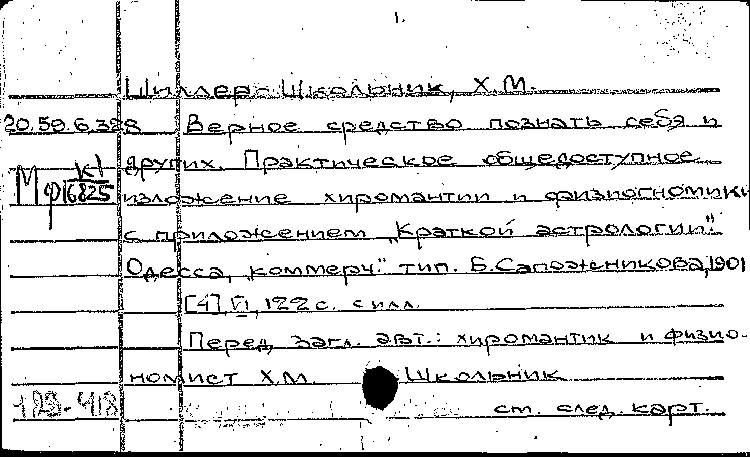 1.
Шиллер-Школьник, Х.М.
20.59.6.388 Верное средство познать себя и
Мф К1 16825 других. Практическое общедоступное
изложение хиромантии и физиогномики
с приложением „Краткой астрологии".
Одесса, „коммерч." тип. Б.Сапожникова, 1901
[4], VI, 122 с. с илл.
Перед загл. авт.: хиромантик и физио-
номист Х.М. Школьник
129-418 см. след. карт.